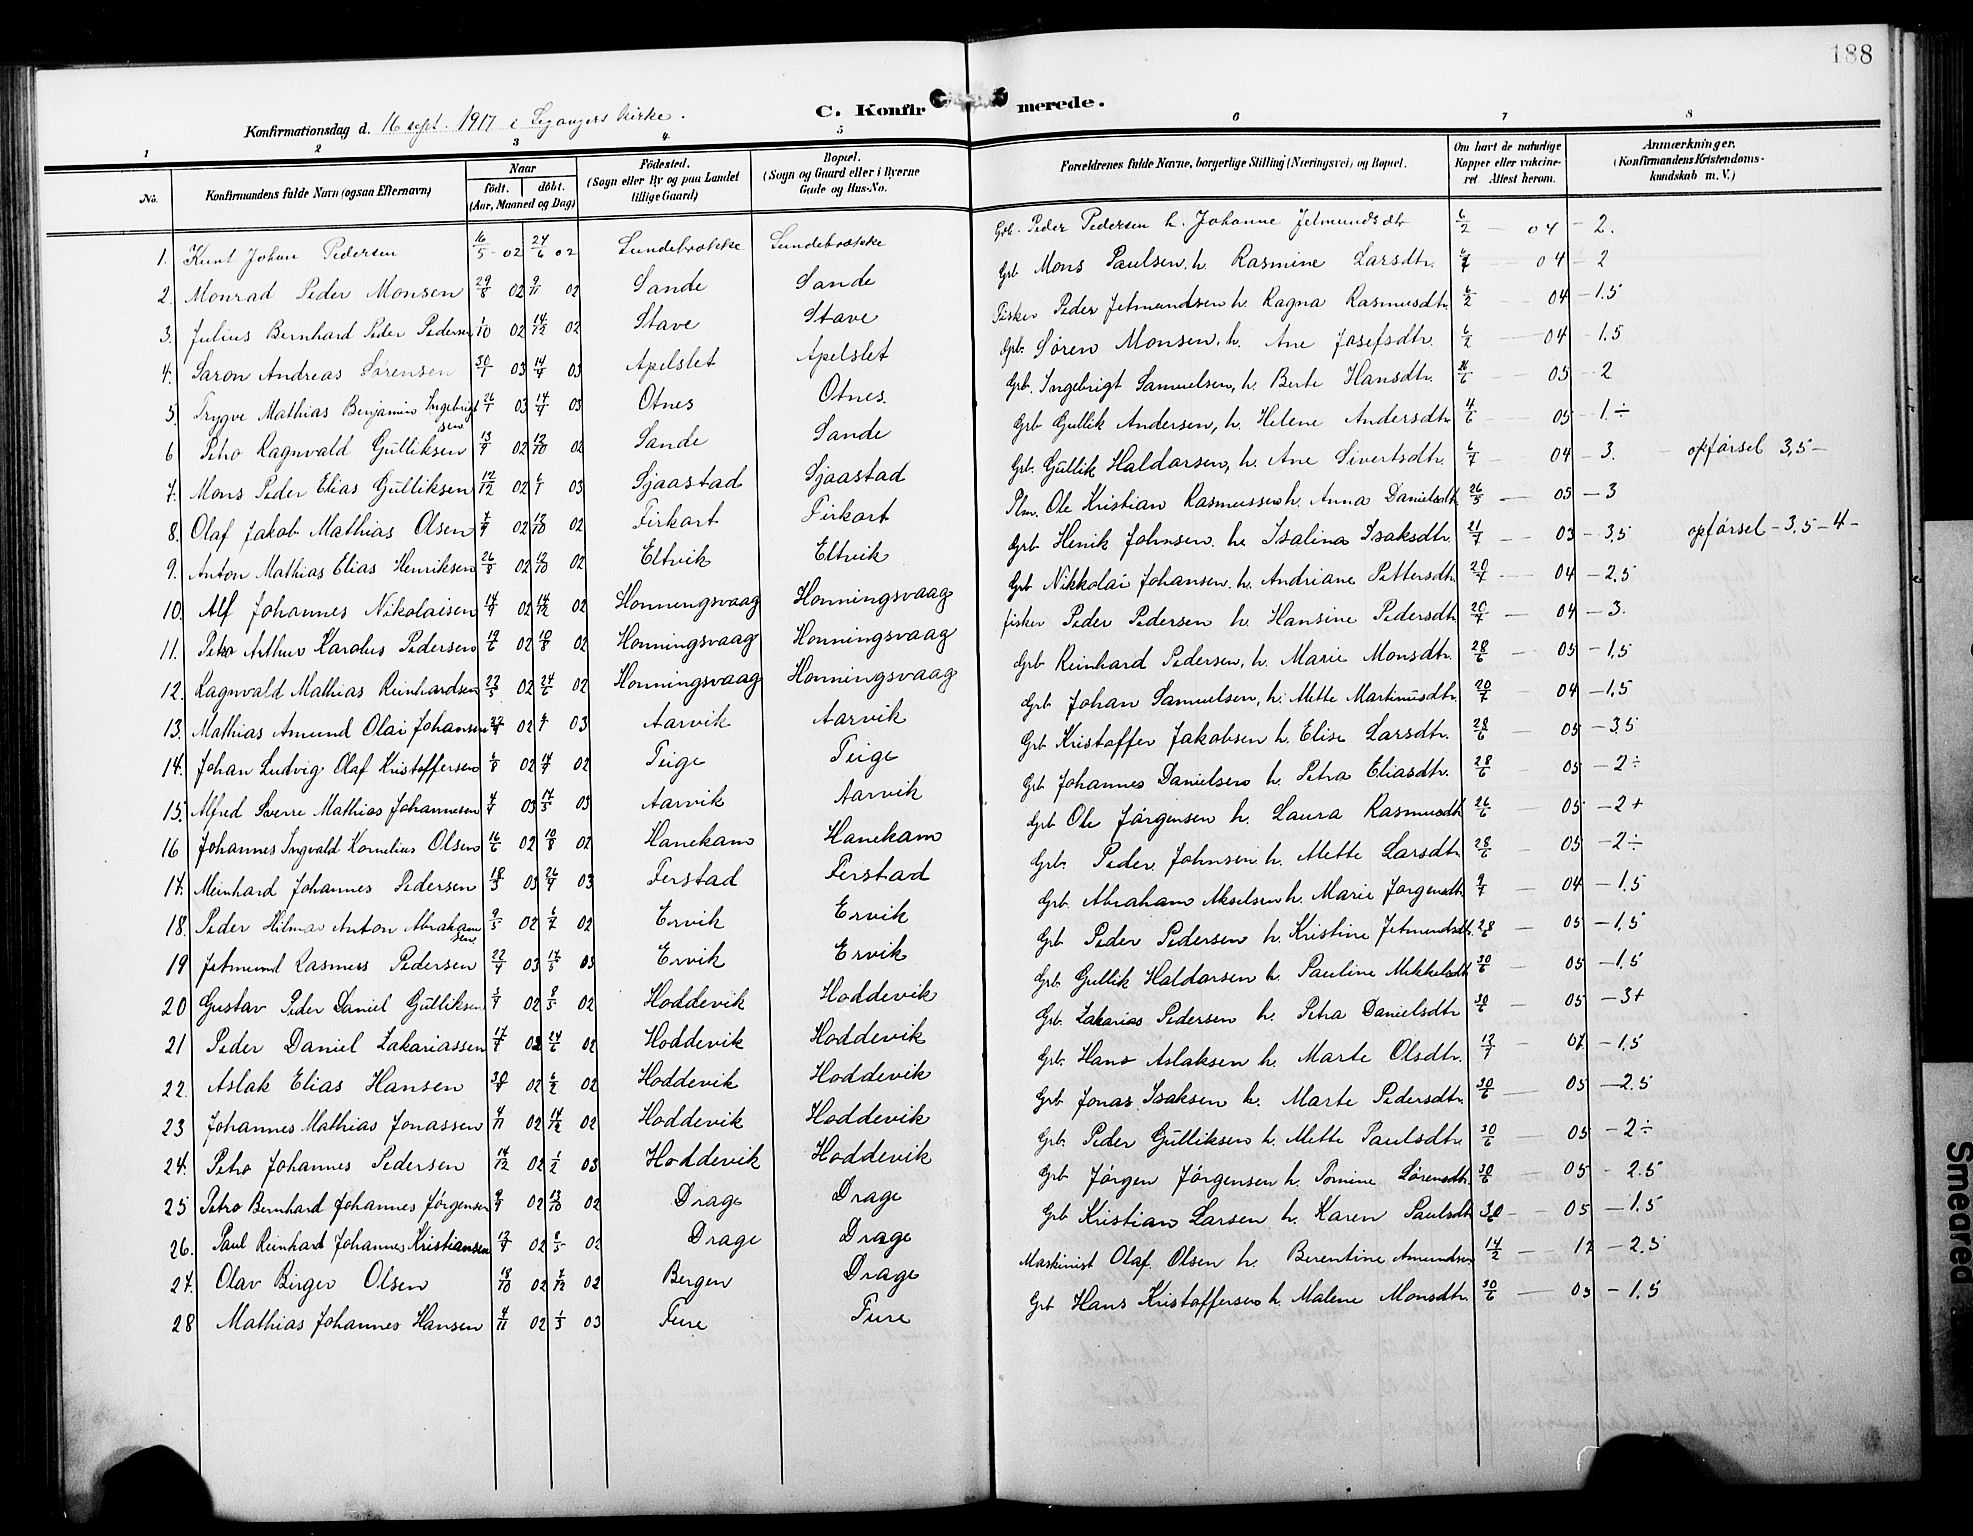 188
C. Konfirmerede.
Konfirmationsdag d. 16 sept. 1917 i Leganger kirke.
1 2 3 4 5 6 7 8
No. Konfirmandens fulde Navn (ogsaa Efternavn) Naar født. døbt. (Aar, Maaned og Dag) Fødested. (Sogn eller By og paa Landet tillige Gaard) Bopæl. (Sogn og Gaard eller i Byerne Gade og Hus-No. Forældrenes fulde Navne, borgerlige Stilling (Næringsvei) og Bopæl. Om havt de naturlige Kopper eller vakcineret Attest herom. Anmærkninger. (Konfirmandens Kristendomskundskab m. V.)
1. Knut Johan Pedersen 16/5 - 02 24/6 02 Lundebrekke Lundebrekke Grb. Peder Pedersen h. Johanne Jetmundsdtr 6/2 — 04 - 2.
2. Monrad Peder Monsen 29/8 02 9/11 02 Sande Sande Grb Mons Paulsen. h. Rasmine Larsdtr. — 04 - 2
3. Julius Bernhard Peder Pedersen 1/10 02 14/12 02 Stave Stave Fisker Peder Jetmundsen h. Ragna Rasmusdtr 6/2 — 04 - 1.5
4. Saron Andreas Sørensen 30/1 03 14/4 03 Apelslet Apelslet Grb. Søren Monsen, h. Ane Josefsdtr. 6/2 — 04 - 1.5
5. Trygve Mathias Benjamin Ingebrigtsen 26/1 03 14/4 03 Otnes Otnes. Grb. Ingebrigt Samuelsen, h. Berte Hansdtr. — 05 - 2
6 Petro Ragnvald Gulliksen 13/9 02 12/10 02 Sande Sande Grb Gullik Andersen, h. Helene Andersdtr 4/6 — 05 - 1.÷
7. Mons Peder Elias Gulliksen 12/12 02 6/1 03 Sjaastad Sjaastad Grb. Gullik Haldorsen, h. Ane Sivertsdtr. 6/7 — 04 - 3. - opførsel 3,5 -
8. Olaf Jakob Mathias Olsen 7/9 02 12/10 02 Firkart Firkart Plm. Ole Kristian Rasmussen h. Anna Danielsdtr 26/5 — 05 - 3
9. Anton Mathias Elias Henriksen 26/8 02 12/10 02 Eltvik Eltvik Grb Henik Johnsen. h. Isalina Isaksdtr. 21/7 — 03 - 3,5 opførsel - 3.5 - 4 -
10. Alf Johannes Nikolaisen 14/9 02 14/12 02 Honningsvaag Honningsvaag Grb Nikkolai Johansen. h. Andriane Pettersdtr 20/7 — 04 - 2.5
11. Petro Arthur Karolus Pedersen 19/6 02 10/8 02 Honningsvaag Honningsvaag fisker Peder Pedersen h. Hansine Pedersdtr 20/7 — 04 - 3.
12. Ragnvald Mathias Reinhardsen 22/5 02 24/6 02 Honningsvaag Honningsvaag Grb Reinhard Pedersen, h. Marie Monsdtr. 28/6 — 05 - 1.5
13. Mathias Amund Olai Johansen 02 03 Aarvik Aarvik Grb Johan Samuelsen, h. Mette Martinusdtr 20/7 — 04 - 1,5
14. Johan Ludvig Olaf Kristoffersen 02 02 Teige Teige Grb Kristoffer Jakobsen h. Elise Larsdtr. 28/6 — 05 - 3.5
15. Alfred Sverre Mathias Johannesen 03 17/5 03 Aarvik Aarvik Grb Johannes Danielsen h. Petra Eliasdtr. 28/6 — 05 - 2÷
16 Johannes Ingvald Kornelius Olsen 16/6 02 10/8 02 Hanekam Hanekam Grb Ole Jørgensen h. Laura Rasmusdtr 26/6 — 05 - 2+
17. Meinhard Johannes Pedersen 18/3 03 26/4 03 Ferstad Ferstad Grb. Peder Johnsen h. Mette Larsdtr 28/6 — 05 - 2÷
18. Peder Hilmar Anton Abrahamsen 9/5 02 6/7 02 Ervik Ervik Grb. Abraham Akselsen h. Marie Jørgensdtr. 9/7 — 04 - 1.5
19 Jetmund Rasmus Pedersen 22/4 03 17/5 03 Ervik Ervik Grb Peder Pedersen h. Kristine Jetmundsdtr. 28/6 — 05 - 1,5
20 Gustav Peder Daniel Gulliksen 02 8/5 02 Hoddevik Hoddevik Grb. Gullik Haldorsen h. Pauline Mikkelsdtr 30/6 — 05 - 1.5
21 Peder Daniel Zakariassen 02 24/6 02 Hoddevik Hoddevik Grb. Zakarias Pedersen h. Petra Danielsdtr 30/6 — 05 - 3+
22. Aslak Elias Hansen 02 02 Hoddevik Hoddevik Grb. Hans Aslaksen h. Marte Olsdtr. — - 1.5
23 Johannes Mathias Jonassen 4/11 02 14/12 02 Hoddevik Hoddevik Grb Jonas Isaksen h. Marte Pedersdtr. 30/6 — 05 - 2.5
24. Petro Johannes Pedersen 14/12 02 1/2 03 Hoddevik Hoddevik Grb. Peder Gulliksen h. Mette Paulsdtr 30/6 — 05 - 2÷
25 Petro Bernhard Johannes Jørgensen 9/9 02 13/10 02 Drage Drage Grb. Jørgen Jørgensen h. Tomine Sørensdtr 30/6 — 05 - 2.5
26. Paul Reinhard Johannes Kristiansen 02 8/5 02 Drage Drage Grb Kristian Larsen h. Karen Paulsdtr 30/6 — 05 - 1.5
27. Olav Birger Olsen 18/10 02 7/12 02 Bergen Drage Maskinist Olaf Olsen h. Berentine Amundsen 14/2 — 17 - 2.5
28 Mathias Johannes Hansen 4/11 02 1/3 03 Fure Fure Grb Hans Kristoffersen h. Malene Monsdtr. 30/6 — 05 - 1,5
Smeared